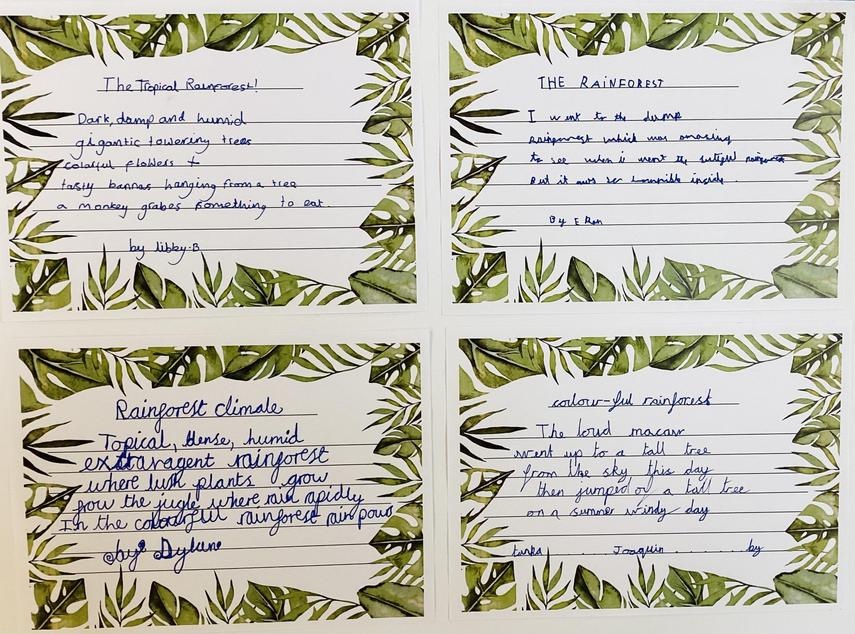 The Tropical Rainforest!
Dark, damp and humid
gigantic towering trees
colorful flowers +
tasty bannas hanging from a tree
a monkey grabes something to eat.
by libby-B
THE RAINFOREST
I went to the dump
rainforest which was amazing
to see when i went the
But it was so horrible inside.
By Eron
Rainforest climale
Topical, dense, humid
extravagent rainforest
where lush plants grow
the jugle where rain rapidly
In the colourful rainforest rain pour
by: Dylane
colour-ful rainforest
The loud macaw
went up to a tall tree
from the sky this day
then jumped of a tall tree
on a summer windy day
tanka Joaquin by